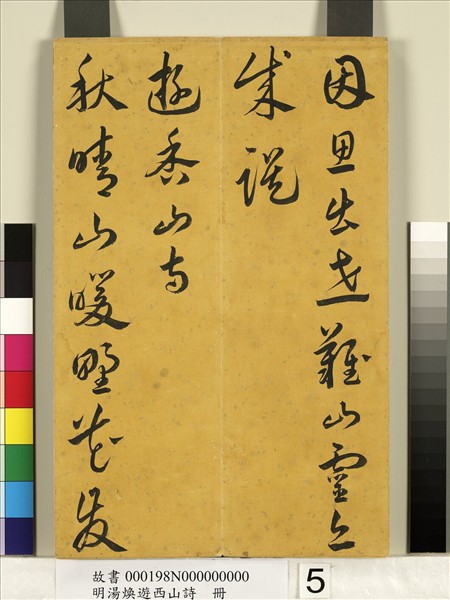 因思出世難山靈
成
遊香山寺
秋晴山暖野花發
故書 000198N000000000
明湯煥遊西山詩 冊
5